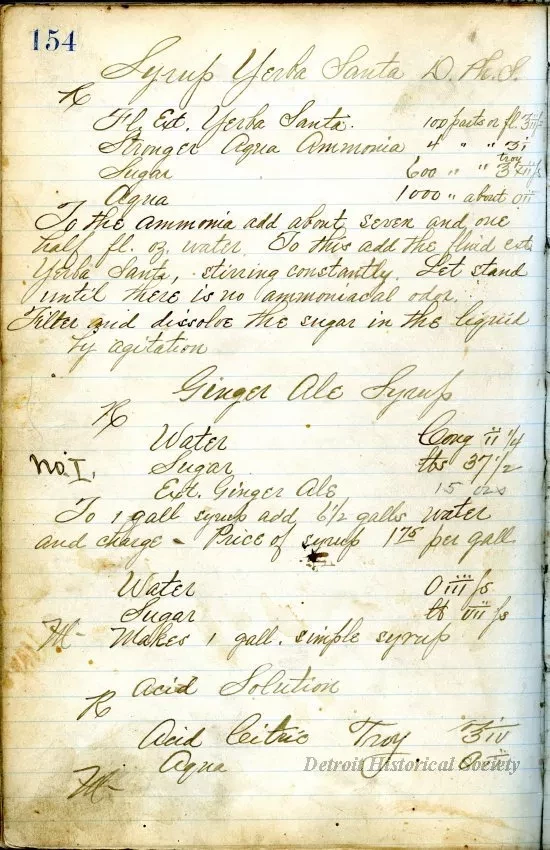 154
Syrup Yerba Santa D. Ph. S.
℞
Fl. Ext. Yerba Santa. 100 parts or fl. ℥iiifs
Stronger Aqua Ammonia 4 " " ʒi
troy
Sugar 600 " "
Aqua 1000 " about Oii
To the ammonia add about seven and one
half fl. oz. water. To this add the fluid ext.
Yerba Santa, stirring constantly. Let stand
until there is no ammoniacal odor.
Filter and dissolve the sugar in the liquid
by agitation
Ginger Ale Syrup
℞
Water Cong ii 1/4
No. I. Sugar lbs 37 1/2
Ext. Ginger Ale 15 ozs
To 1 gall syrup add 6 1/2 galls water
and charge - Price of syrup 1 75 per gall
Water O iii fs
Sugar lb vii fs
M- Makes 1 gall. simple syrup
Acid Solution
℞
Acid Citric Troy ℥iv
Aqua
M-
Detroit Historical Society